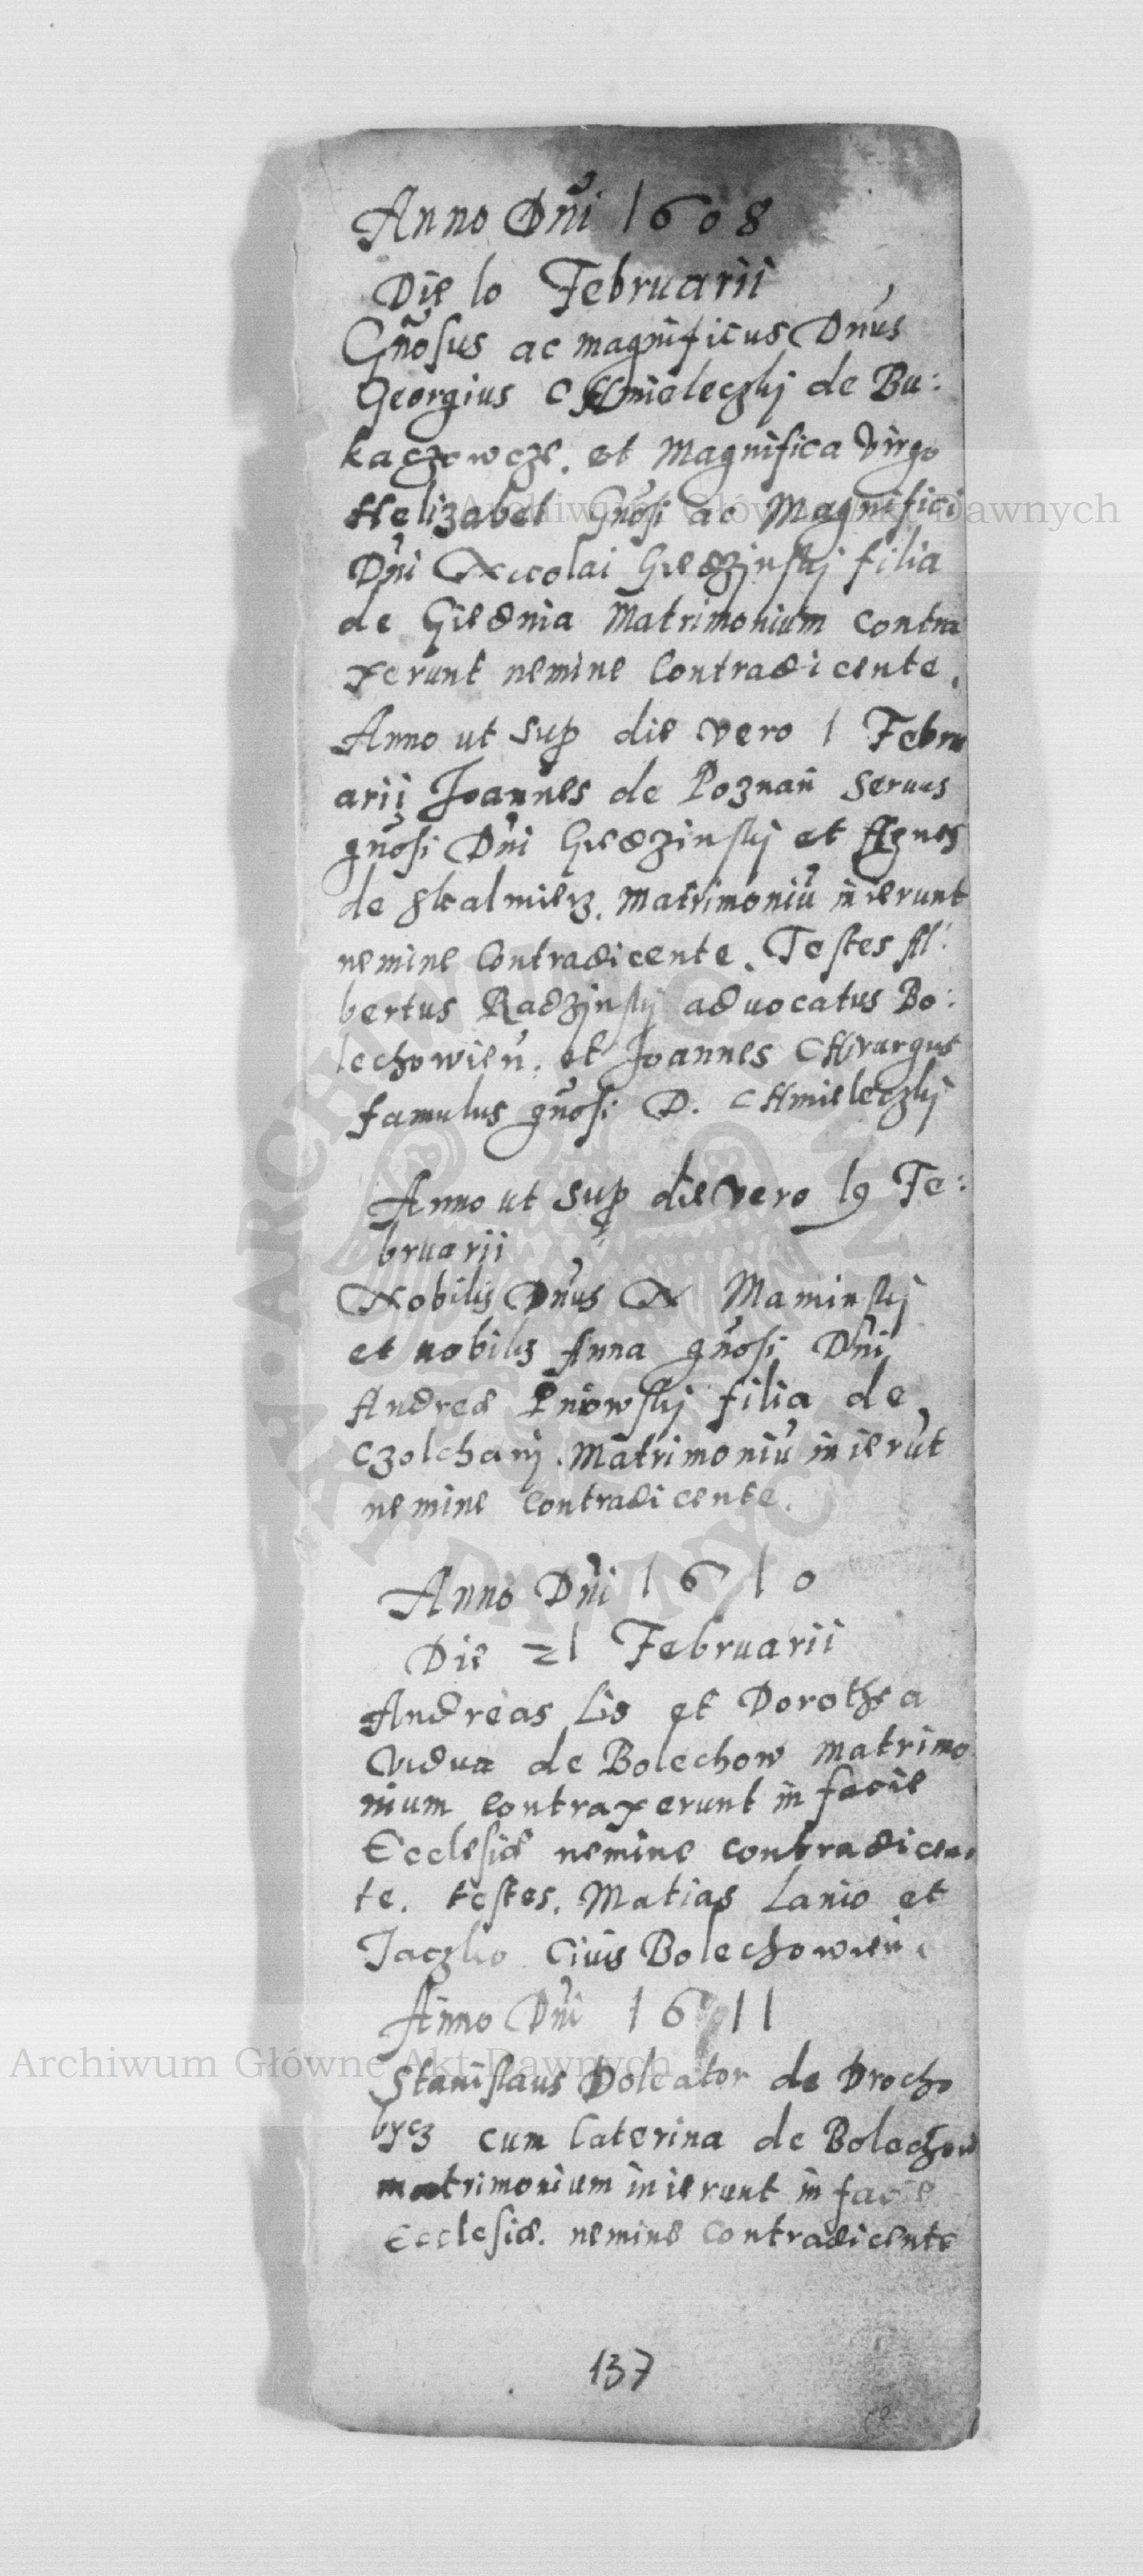 Anno Dñi 1608
Die 10 Februarii
Gñosus ac magnificus Dñus
Georgius CHmieleczkj de Bu:
kaczowcze. et Magnifica Virgo
Helizabet Gñosi ac Magnifici
Dñi Nicolai Giedzinskj filia
de Giednia Matrimonium Contra
xerunt nemine Contradicente.
Anno ut sup die vero 1 Febru
arii Joannes de Poznań Seruus
gñosi Dñi Giedzinskj et Agnes
de Skalmierz. Matrimoniū inierunt
nemine Contradicente. Testes Al:
bertus Radzjnskj aduocatus Bo:
lechowień. et Joannes CHirurgus
famulus gñosi D. CHmieleczkj
Anno ut sup die vero 19 Fe:
bruarii
Nobilis Dñus N Maminskj
et nobilis Anna gñosi Dñi
Andreæ Pniowskj filia de
Czolchanj. Matrimoniū inierūt
nemine Contradicente.
Anno Dñi 1610
Die 21 Februarii
Andreas Lis et Dorothea
Vidua de Bolechow matrimo
nium contraxerunt in facie
Ecclesiæ nemine contradicen
te. testes. Matias Lanio et
Jaczko Ciuis Bolechowień.
Anno Dñi 1611
Stanislaus Doleator de Drocho
bycz cum Caterina de Bolechow
matrimonium inierunt in facie
Ecclesiæ. nemine Contradicente
137
Archiwum Główne Akt Dawnych